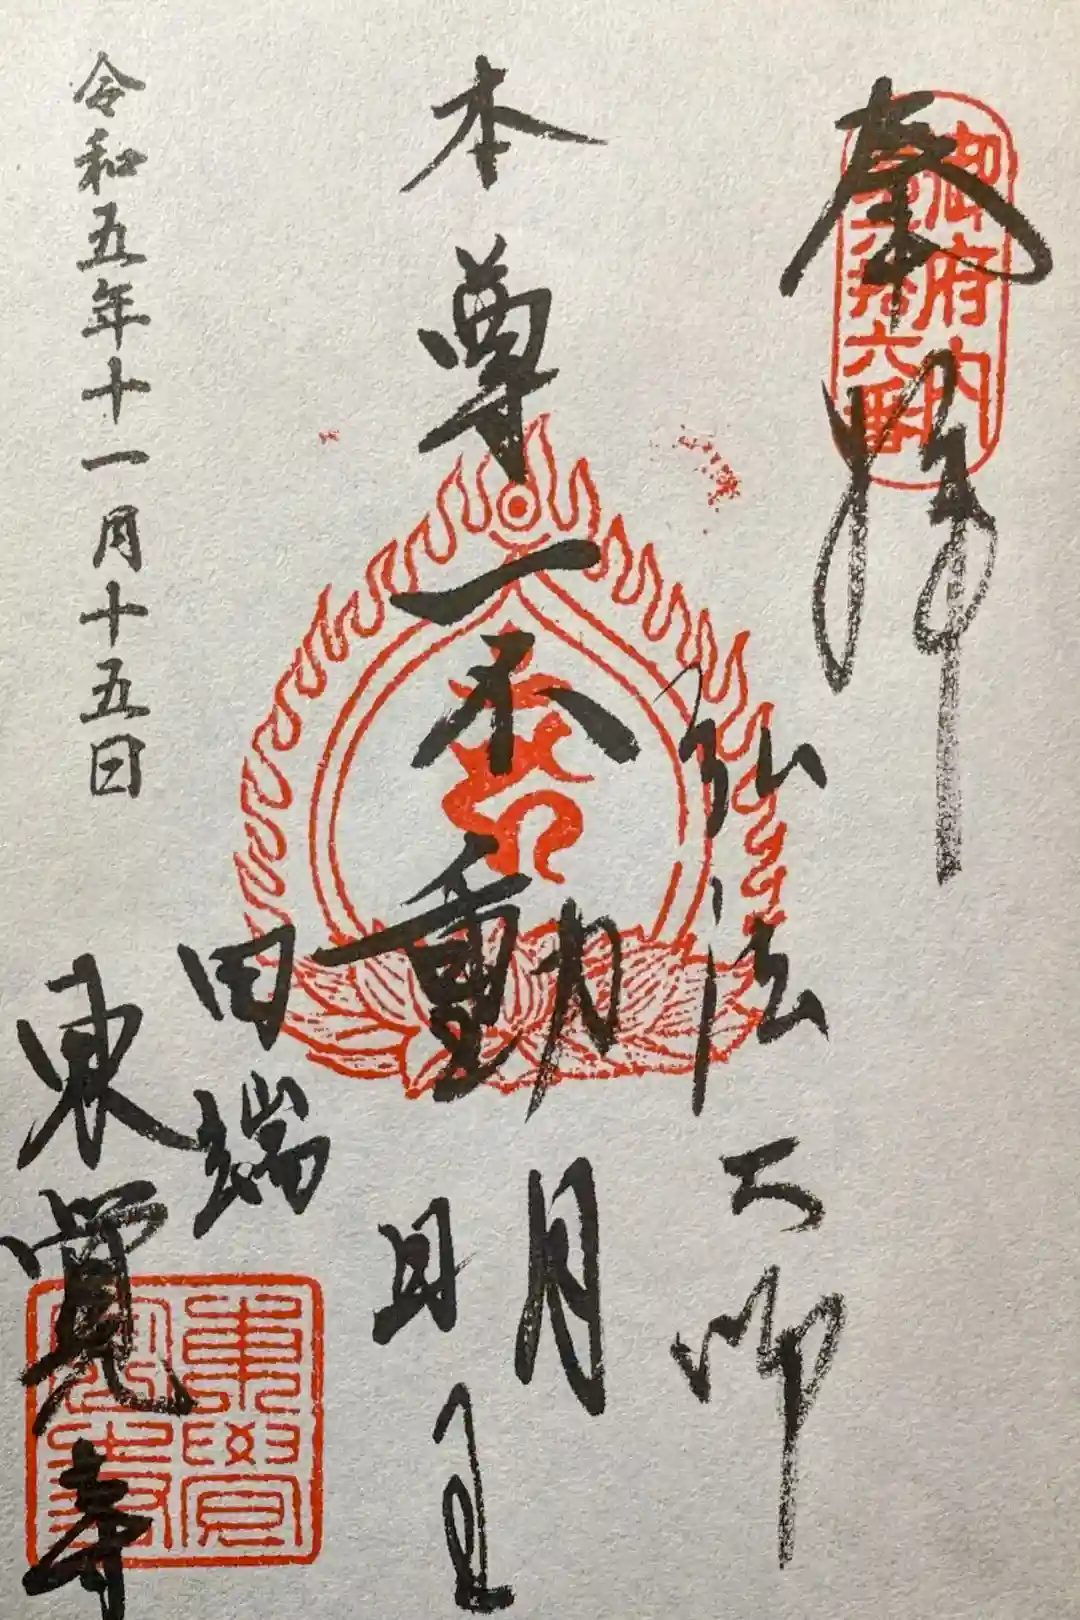 奉拝
御府内
第六拾六番
弘法大師
本尊不動明王
田端
東覺寺
令和五年十一月十五日